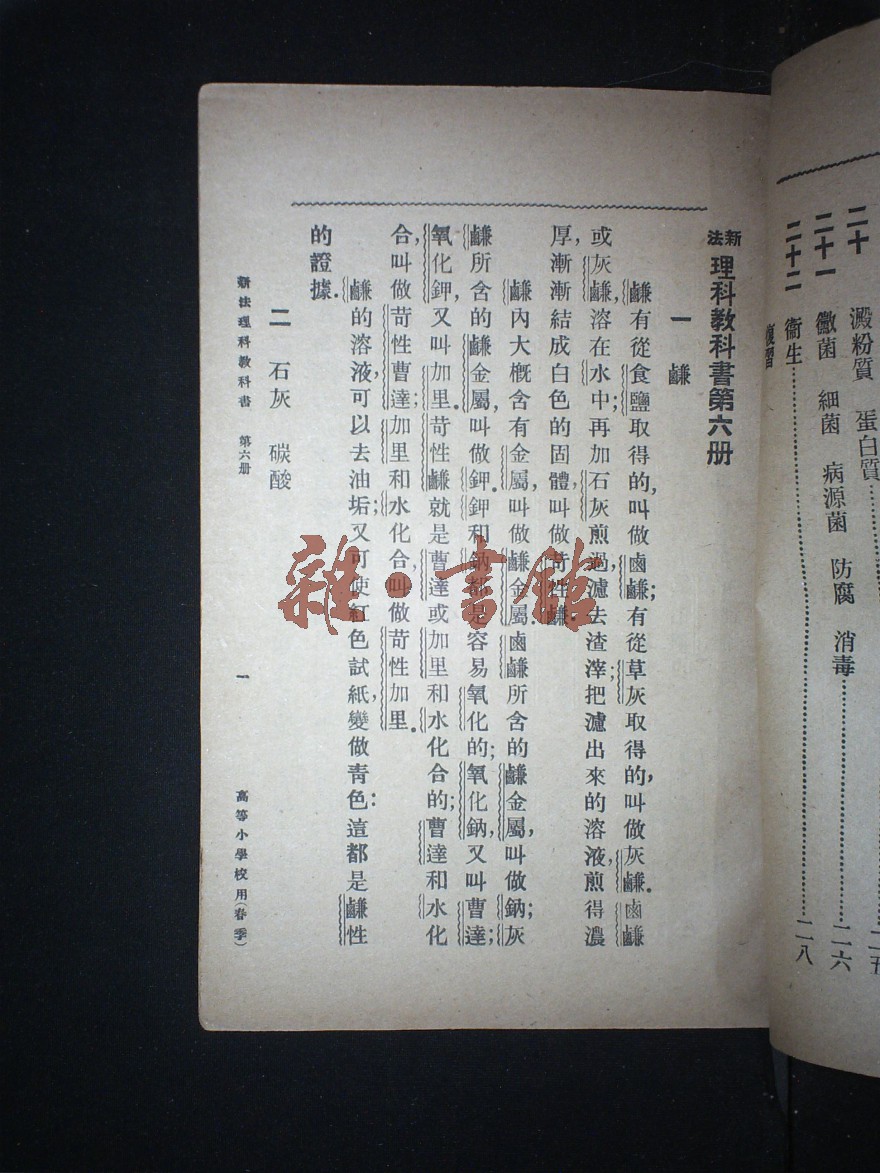 二十 澱粉質 蛋白質 二五
二十一 黴菌 細菌 病源菌 防腐 消毒 二六
二十二 衞生 二八
複習
新法理科教科書第六册
一 鹻
鹻有從食鹽取得的,叫做鹵鹻;有從草灰取得的,叫做灰鹻.鹵鹻
或灰鹻溶在水中;再加石灰煎過,濾去渣滓;把濾出來的溶液,煎得濃
厚,漸漸結成白色的固體,叫做苛性鹻.
鹻內大概含有金屬,叫做鹻金屬鹵鹻所含的鹻金屬,叫做鈉;灰
鹻所含的鹻金屬,叫做鉀.鉀和鈉都是容易氧化的;氧化鈉,又叫曹達;
氧化鉀,又叫加里.苛性鹻就是曹達或加里和水化合的;曹達和水化
合,叫做苛性曹達;加里和水化合,叫做苛性加里.
鹻的溶液,可以去油垢;又可使紅色試紙,變做靑色:這都是鹻性
的證據.
二 石灰 碳酸
新法理科教科書 第六册 一 高等小學校用(春季)
雜·書館